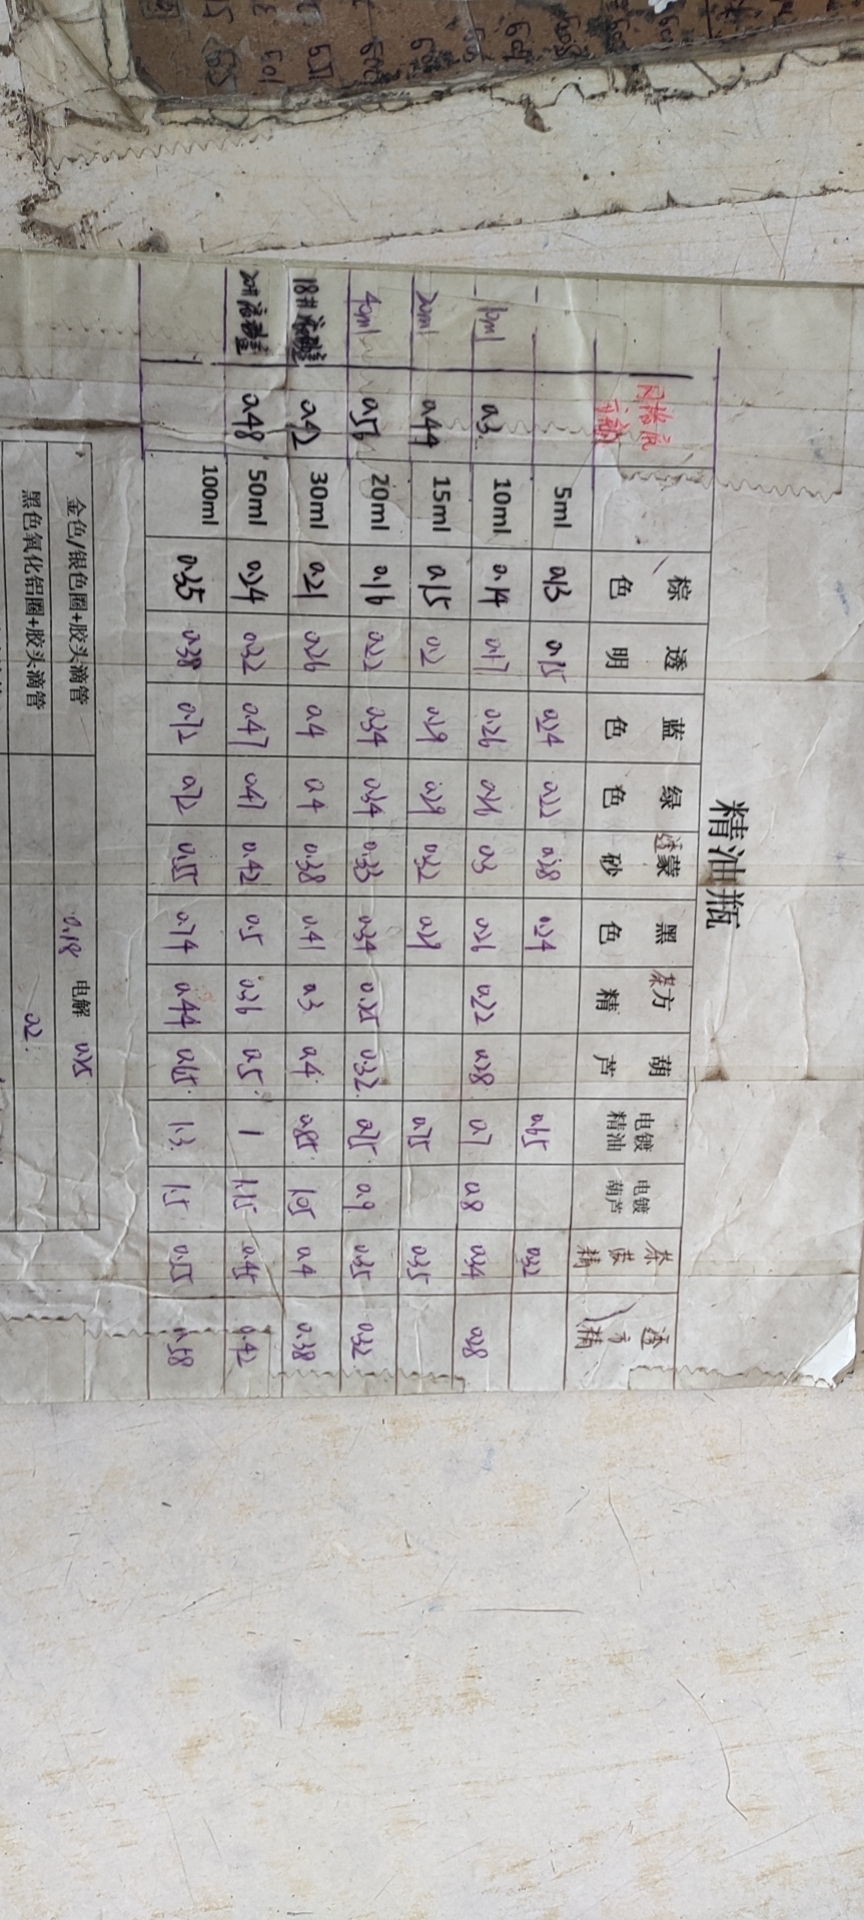 精油瓶
棕色 透明 蓝色 绿色 透蒙砂 黑色 茶方精 葫芦 电镀精油 电镀葫芦 茶蒙精 透方精
5ml 0.13 0.15 0.24 0.22 0.28 0.24 0.65 0.32
10ml 0.3 10ml 0.14 0.17 0.26 0.26 0.3 0.26 0.22 0.28 0.7 0.8 0.34 0.28
20ml 0.44 15ml 0.15 0.2 0.29 0.29 0.32 0.29 0.75 0.35
40ml 0.56 20ml 0.16 0.22 0.34 0.34 0.33 0.34 0.25 0.32 0.75 0.9 0.35 0.32
18# 0.42 30ml 0.21 0.26 0.4 0.4 0.38 0.41 0.3 0.4 0.85 1.05 0.4 0.38
20# 0.48 50ml 0.24 0.32 0.47 0.47 0.42 0.5 0.36 0.5 1 1.15 0.45 0.42
100ml 0.35 0.38 0.72 0.72 0.55 0.74 0.44 0.65 1.3 1.5 0.55 0.58
金色/银色圈+胶头滴管 0.18 电解 0.25
黑色氧化铝圈+胶头滴管 0.2